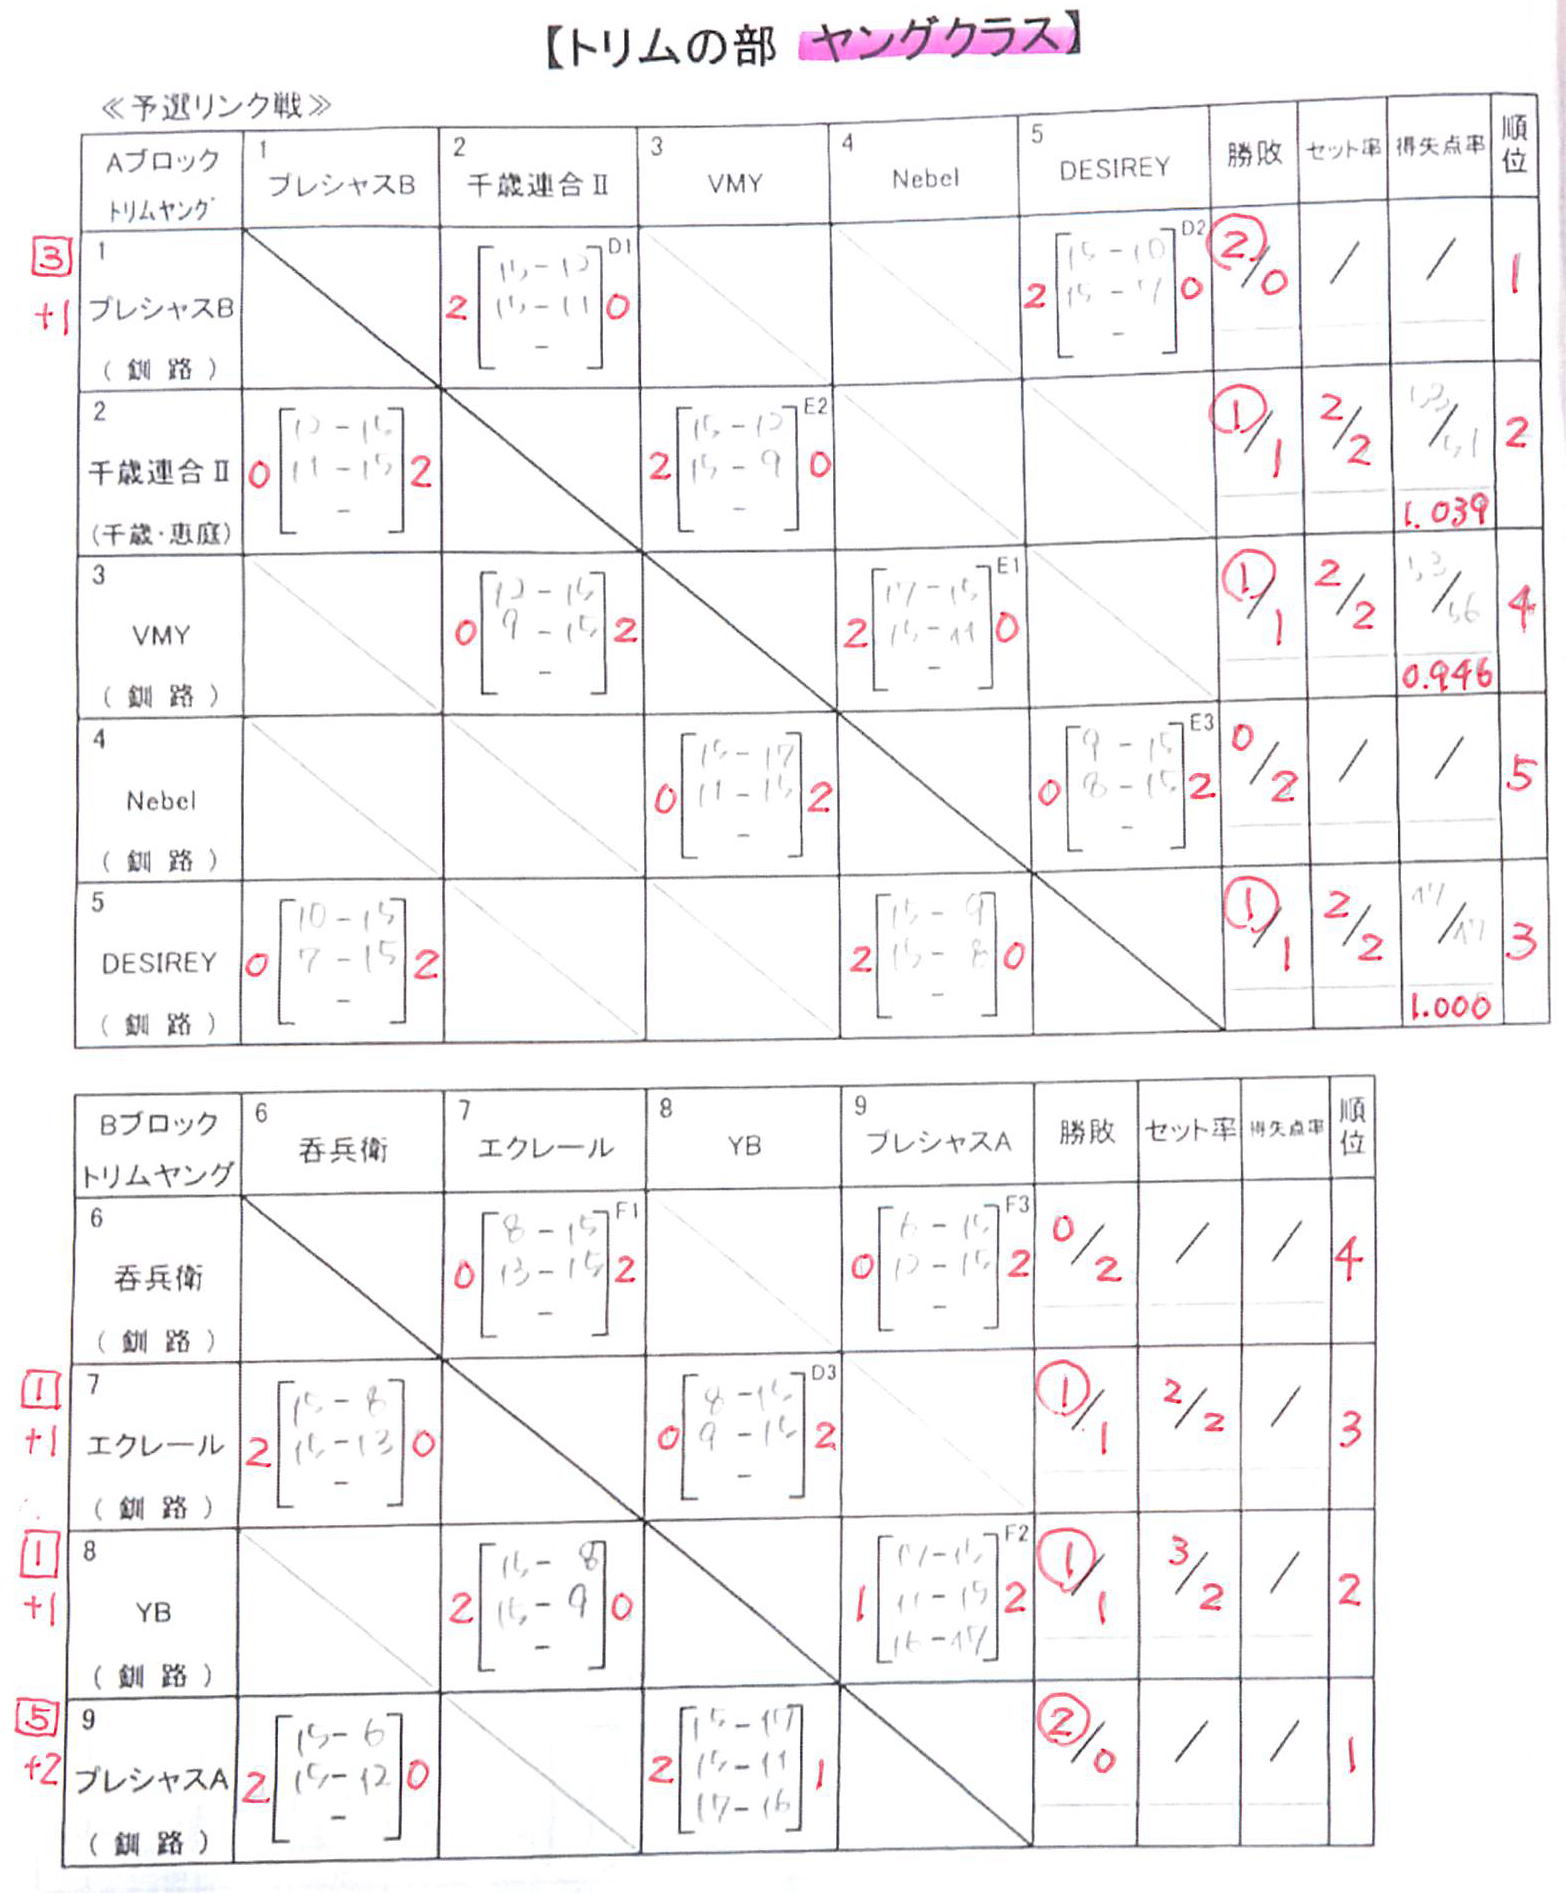 【トリムの部 ヤングクラス】
≪予選リンク戦≫
Aブロック トリムヤング 1 プレシャスB 2 千歳連合Ⅱ 3 VMY 4 Nebel 5 DESIREY 勝敗 セット率 得失点率 順位
3 +1 1 プレシャスB (釧路) 2 [15-12 15-11 -] 0 D1 2 [15-10 15-7 -] 0 D2 2/0 / / 1
2 千歳連合Ⅱ (千歳・恵庭) 0 [12-15 11-15 -] 2 2 [15-12 15-9 -] 0 E2 1/1 2/2 53/51 1.039 2
3 VMY (釧路) 0 [12-15 9-15 -] 2 2 [17-15 15-11 -] 0 E1 1/1 2/2 53/56 0.946 4
4 Nebel (釧路) 0 [15-17 11-15 -] 2 0 [9-15 8-15 -] 2 E3 0/2 / / 5
5 DESIREY (釧路) 0 [10-15 7-15 -] 2 2 [15-9 15-8 -] 0 1/1 2/2 47/47 1.000 3
Bブロック トリムヤング 6 呑兵衛 7 エクレール 8 YB 9 プレシャスA 勝敗 セット率 得失点率 順位
6 呑兵衛 (釧路) 0 [8-15 13-15 -] 2 F1 0 [6-15 12-15 -] 2 F3 0/2 / / 4
1 +1 7 エクレール (釧路) 2 [15-8 15-13 -] 0 0 [8-15 9-15 -] 2 D3 1/1 2/2 / 3
1 +1 8 YB (釧路) 2 [15-8 15-9 -] 0 1 [17-15 11-15 16-17] 2 F2 1/1 3/2 / 2
5 +2 9 プレシャスA (釧路) 2 [15-6 15-12 -] 0 2 [15-17 15-11 17-16] 1 2/0 / / 1